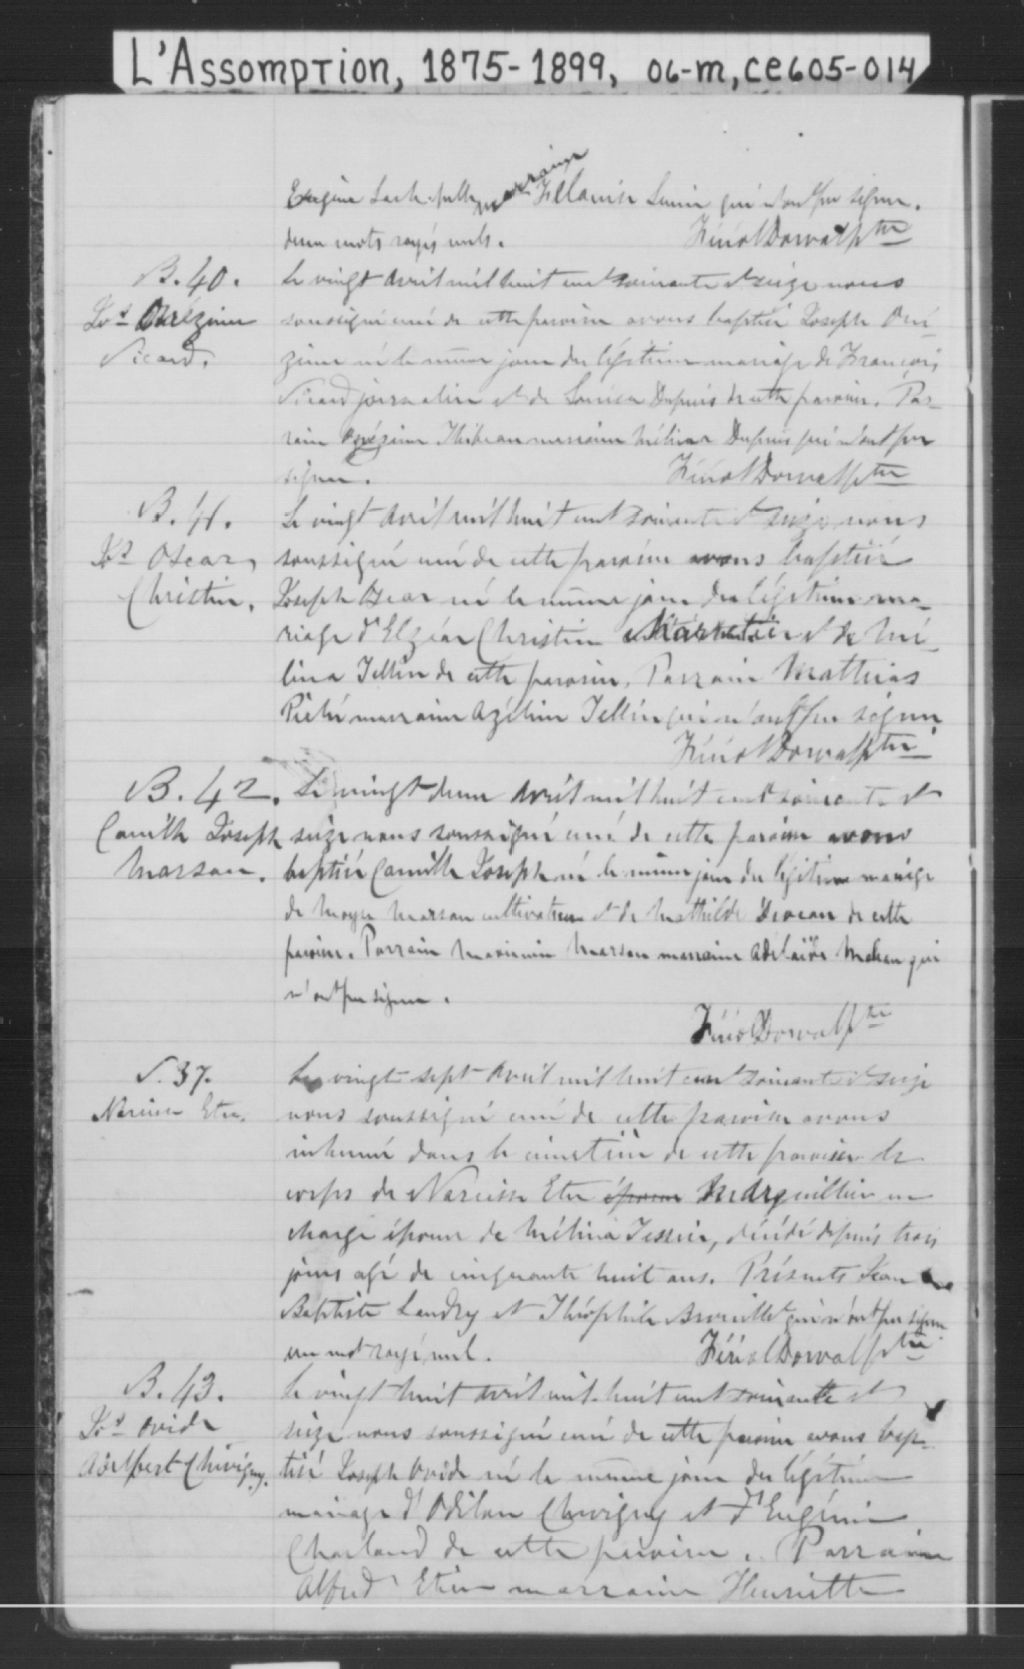 L'Assomption, 1875-1899, 06-m, ce605-014
Eugène marraine qui n'ont pu signer.
deux mots rayés nuls. Féréol Dorval ptre
B. 40.
Js Onézime
Sicard.
Le vingt avril mil huit cent soixante et seize nous
soussigné curé de cette paroisse avons baptisé Joseph Oné-
zime né le même jour du légitime mariage de François
Sicard journalier et de Dupuis de cette paroisse. Par-
rain Onézime marraine Mélina Dupuis qui n'ont pu
signer. Féréol Dorval ptre
B. 41.
Js Oscar
Christin.
Le vingt avril mil huit cent soixante et seize nous
soussigné curé de cette paroisse avons baptisé
Joseph Oscar né le même jour du légitime ma-
riage d'Elzéar Christin et de Mé-
lina de cette paroisse. Parrain Mathias
marraine Azélina qui n'ont pu signer
Féréol Dorval ptre
B. 42.
Camille Joseph
Marsan.
Le vingt deux avril mil huit cent soixante et
seize nous soussigné curé de cette paroisse avons
baptisé Camille Joseph né le même jour du légitime mariage
de Marsan cultivateur et de Mathilde de cette
paroisse. Parrain Marsan marraine Adélaïde qui
n'ont pu signer.
Féréol Dorval ptre
S. 37.
Narcisse Ethier.
Le vingt sept avril mil huit cent soixante et seize
nous soussigné curé de cette paroisse avons
inhumé dans le cimetière de cette paroisse le
corps de Narcisse époux Marguillier en
charge époux de Mélina Tessier, décédé depuis trois
jours agé de cinquante huit ans. Présents Jean
Baptiste Landry et Théophile qui n'ont pu signer
un mot rayé nul. Féréol Dorval ptre
B. 43.
Js Ovide
Adelbert Chevigny.
Le vingt huit avril mil huit cent soixante et
seize nous soussigné curé de cette paroisse avons bap-
tisé Joseph Ovide né le même jour du légitime
mariage d'Odilon Chevigny et d'Eugénie
Charland de cette paroisse. Parrain
Alfred marraine Henriette